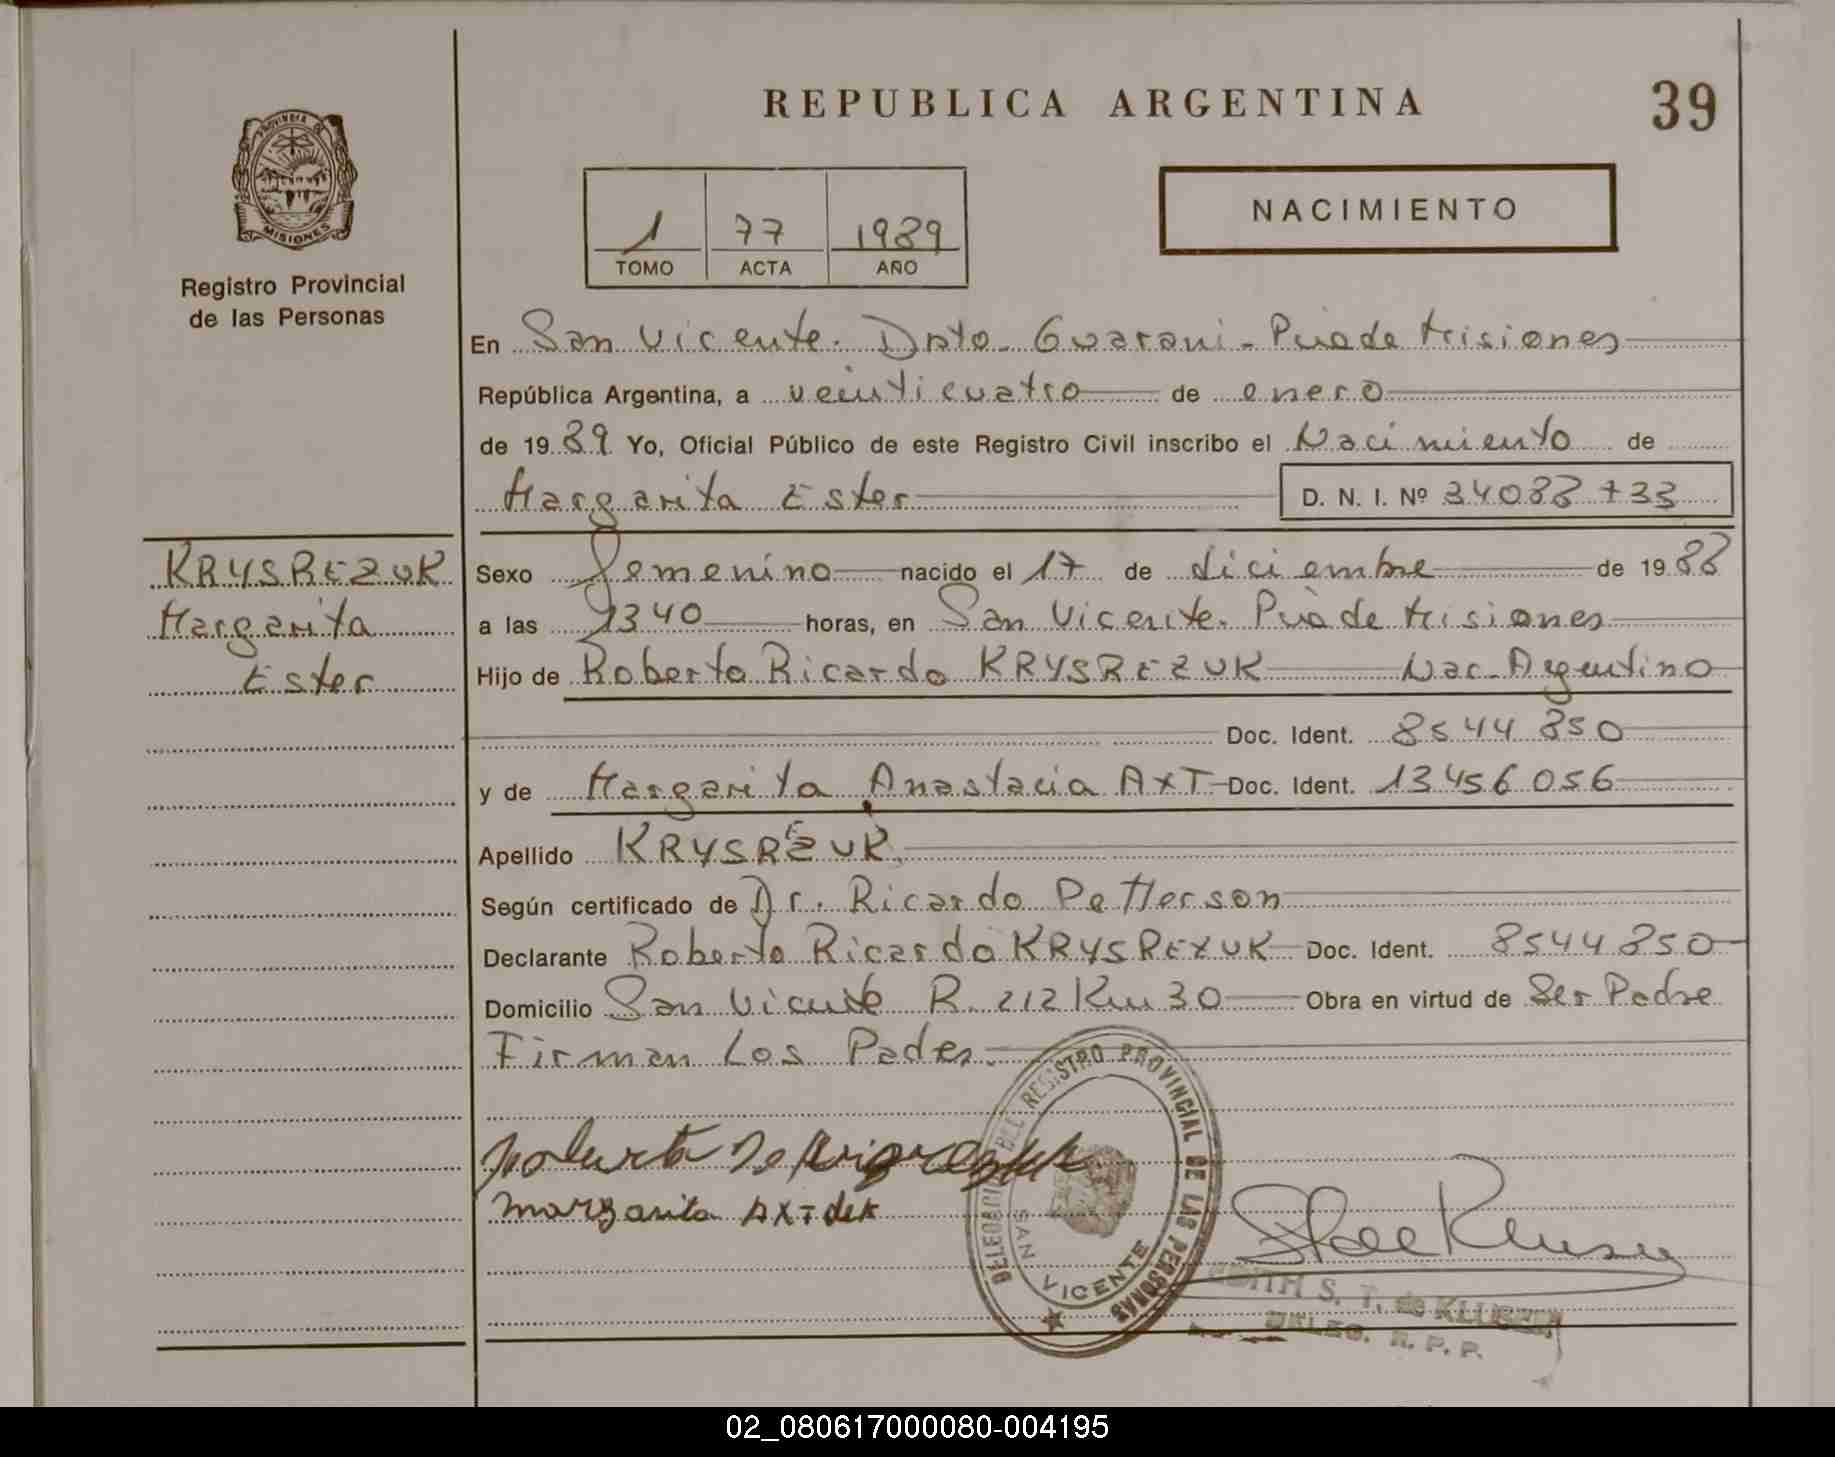 REPUBLICA ARGENTINA
39
PROVINCIA DE
MISIONES
Registro Provincial
de las Personas
1 77 1989
TOMO ACTA AÑO
NACIMIENTO
En San Vicente. Dpto. Guarani - Pcia de Misiones
República Argentina, a veinticuatro de enero
de 1989 Yo, Oficial Público de este Registro Civil inscribo el Nacimiento de
Margarita Ester D. N. I. Nº 34088733
KRYSREZUK
Margarita
Ester
Sexo femenino nacido el 17 de diciembre de 1988
a las 1340 horas, en San Vicente. Pcia de Misiones
Hijo de Roberto Ricardo KRYSREZUK Nac. Argentino
Doc. Ident. 8544850
y de Margarita Anastacia AXT Doc. Ident. 13456056
Apellido KRYSREZUK
Según certificado de Dr. Ricardo Petterson
Declarante Roberto Ricardo KRYSREZUK Doc. Ident. 8544850
Domicilio San Vicente R. 212 Km 30 Obra en virtud de Ser Padre
Firman Los Pades.
margarita AXT de K
REGISTRO PROVINCIAL DE LAS PERSONAS
SAN VICENTE
S. T. de KLUSER
DELEG. R. P. P.
02_080617000080-004195